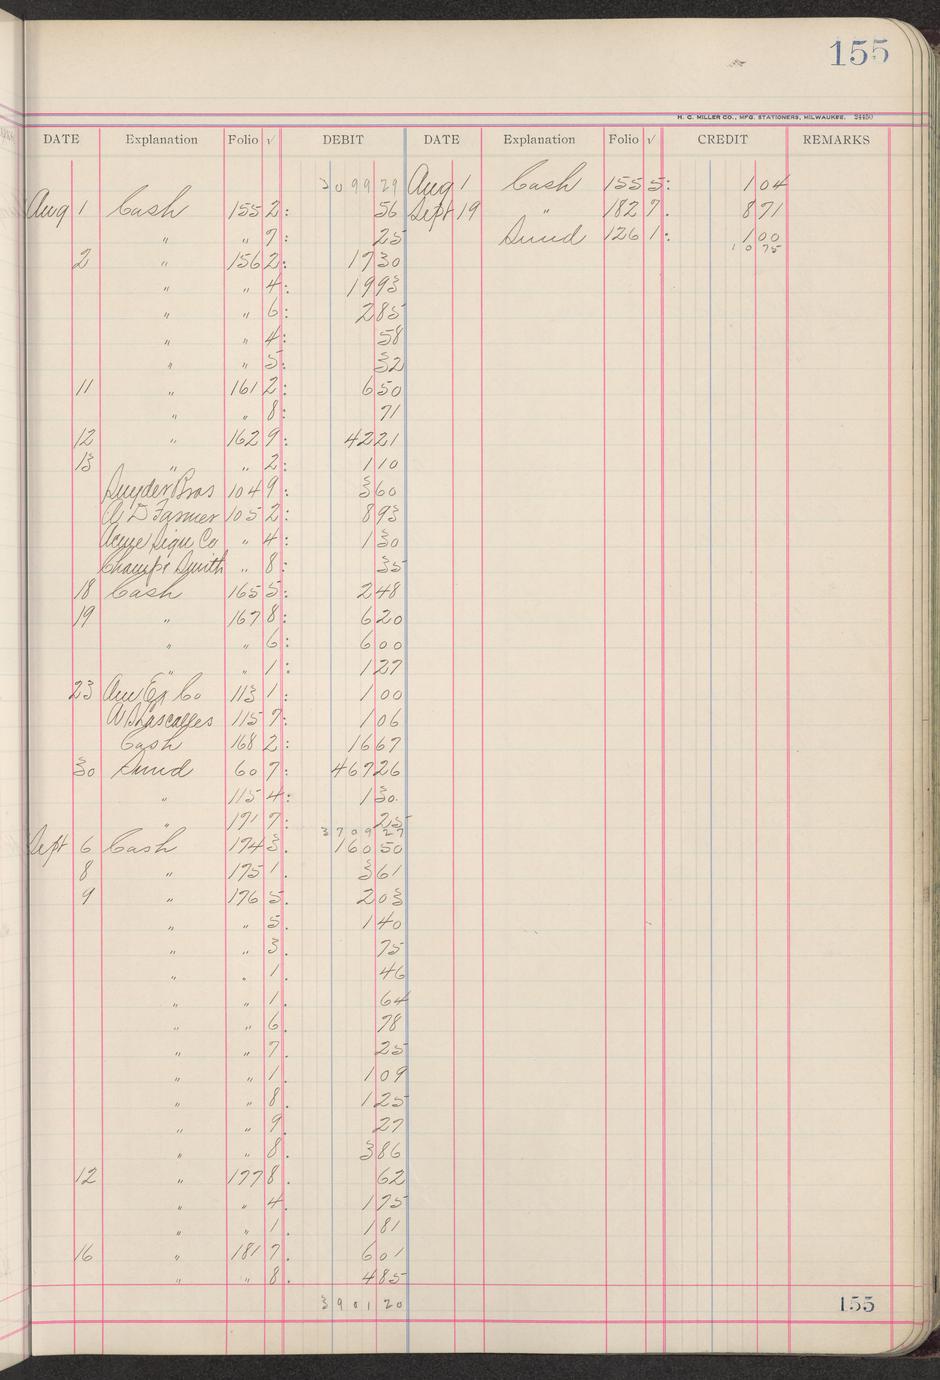 155
H. C. MILLER CO., MFG. STATIONERS, MILWAUKEE. 24450
DATE Explanation Folio √ DEBIT DATE Explanation Folio √ CREDIT REMARKS
3099 29 Aug 1 Cash 155 5: 1 04
Aug 1 Cash 155 2: 56 Sept 19 " 182 7. 8 71
" " 7: 25 Sund 126 1: 1 00
2 " 156 2: 17 30 10 75
" " 4: 19 93
" " 6: 2 85
" " 4: 58
" " 5: 32
11 " 161 2: 6 50
" " 8: 71
12 " 162 9: 42 21
13 " " 2: 1 10
Snyder Bros 104 9: 3 60
A D Farmer 105 2: 8 93
Acme Sign Co " 4: 1 30
Champe Smith " 8: 35
18 Cash 165 5: 2 48
19 " 167 8: 6 20
" " 6: 6 00
" " 1: 1 27
23 Am Ex Co 113 1: 1 00
A B Lascalles 115 7: 1 06
Cash 168 2: 16 67
30 Sund 60 7: 467 26
" 115 4: 1 30
" 171 7: 25
3709 27
Sept 6 Cash 174 3. 160 50
8 " 175 1. 3 61
9 " 176 5. 2 03
" " 5. 1 40
" " 3. 75
" " 1. 46
" " 1. 64
" " 6. 78
" " 7. 25
" " 1. 1 09
" " 8. 1 25
" " 9. 27
" " 8. 3 86
12 " 177 8. 62
" " 4. 1 75
" " 1. 1 81
16 " 181 7. 6 01
" " 8. 4 85
3901 20 155